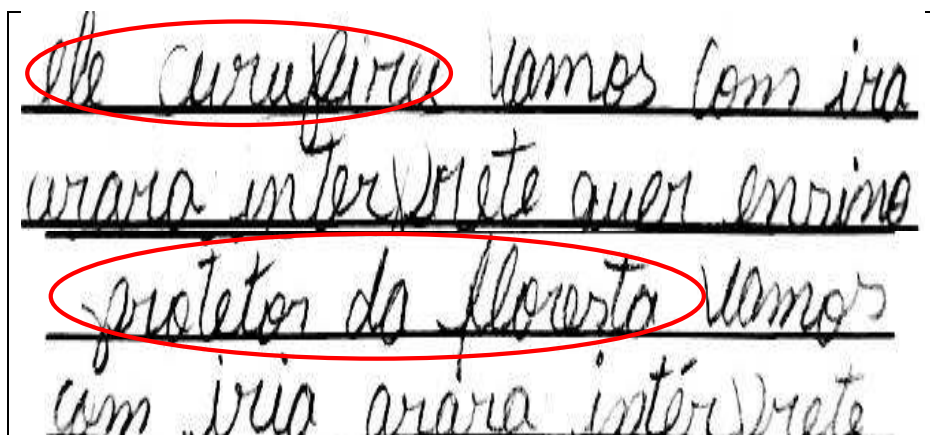 ele curupira vamos com ira
arara interprete quer ensino
protetor da floresta vamos
com iria arara intérprete